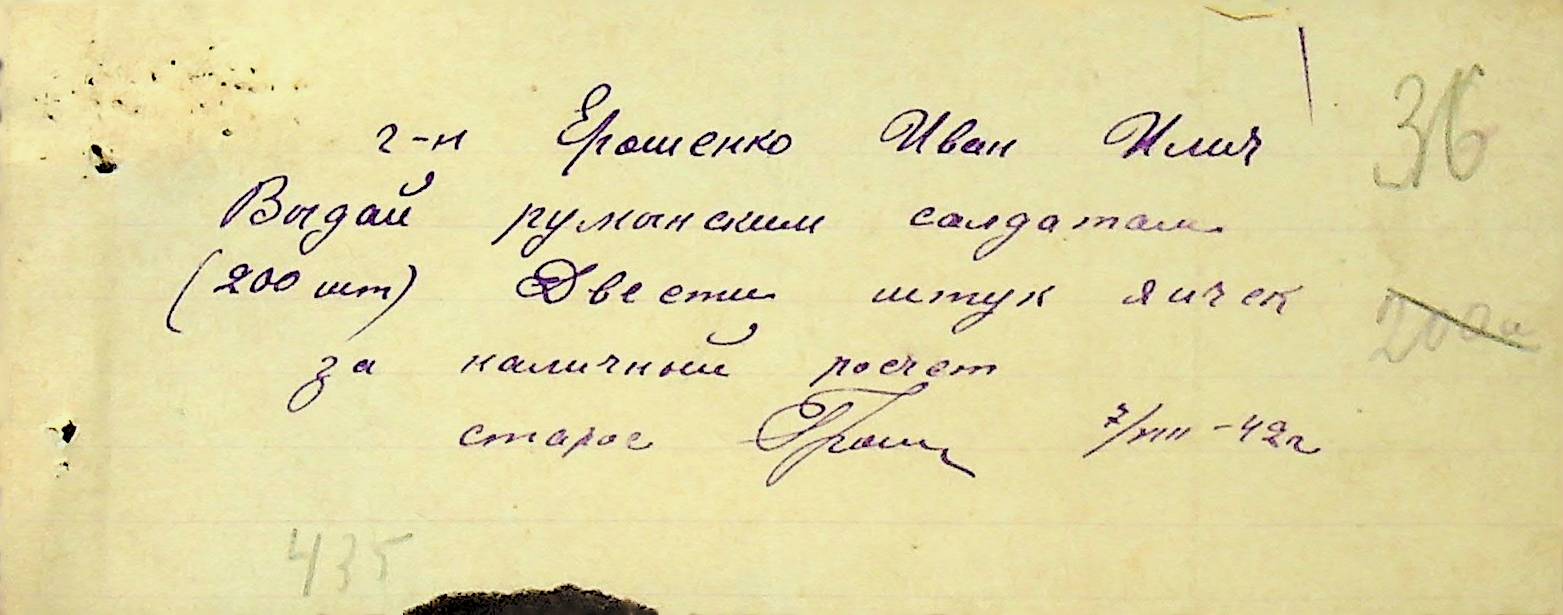 г-н Ерошенко Иван Илич
36
Выдай румынским солдатам
(200 шт) Двести штук яичек
за наличный росчет
старос 7/VIII-42г
435